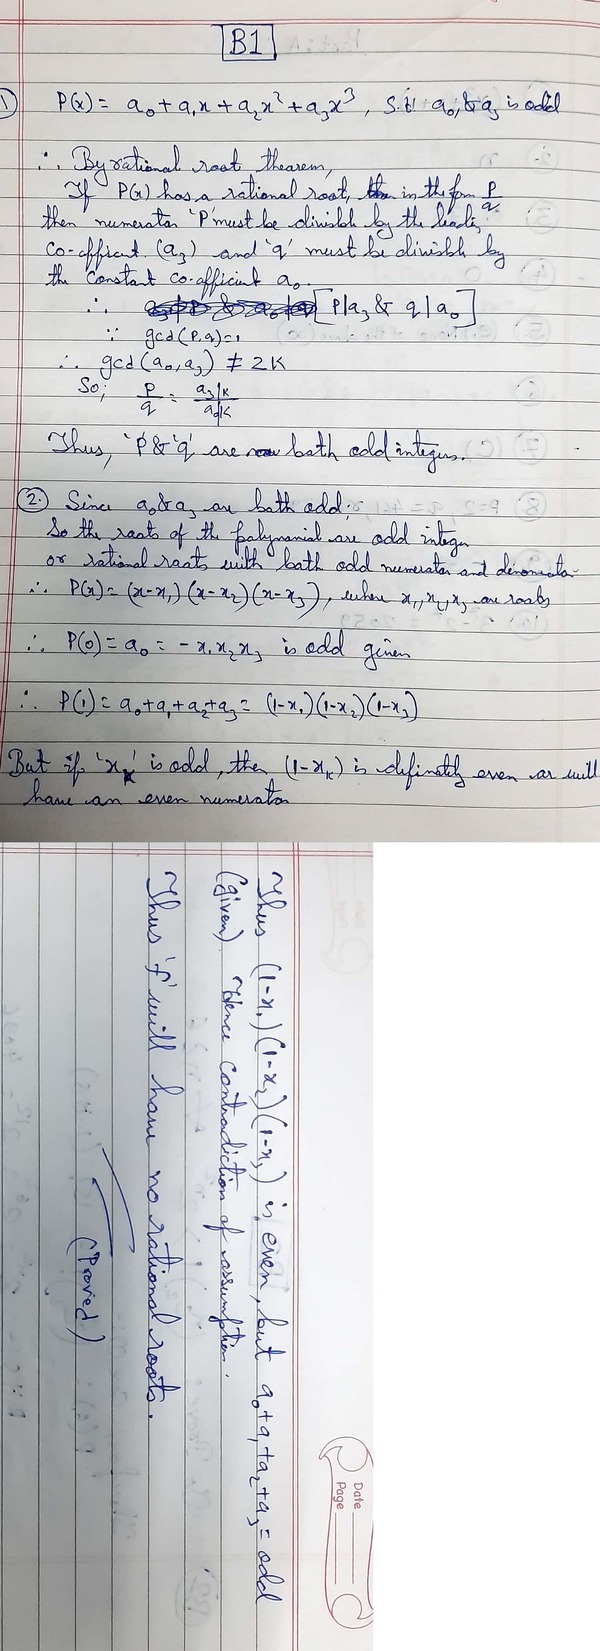 B1
1 P(x) = a₀ + a₁x + a₂x² + a₃x³, s.t. a₀, & a₃ is odd
∴ By rational root thearem,
If P(x) has a rational root, in the form P/q
then numerator 'P' must be divisbh by the leading
co-efficient (a₃) and 'q' must be divisbh by
the constant co-efficient a₀.
∴ [P|a₃ & q|a₀]
∵ gcd(P,q)=1
∴ gcd(a₀,a₃) ≠ 2K
So, P/q = (a₃/K)/(a₀/K)
Thus, 'P' & 'q' are bath odd integers.
2. Since a₀ & a₃ are bath odd;
So the roats of the palynamial are odd integer
or rational raats with bath odd numerator and denominator
∴ P(x) = (x-x₁)(x-x₂)(x-x₃), where x₁,x₂,x₃ are roats
∴ P(0) = a₀ = -x₁x₂x₃ is odd given
∴ P(1) = a₀+a₁+a₂+a₃ = (1-x₁)(1-x₂)(1-x₃)
But if 'xₖ' is odd, then (1-xₖ) is definately even or will
have an even numerator
Thus (1-x₁)(1-x₂)(1-x₃) is even, but a₀+a₁+a₂+a₃ = odd
(given). Hence contradiction of assumption.
Thus 'f' will have no rational roots.
(Proved)
Date
Page